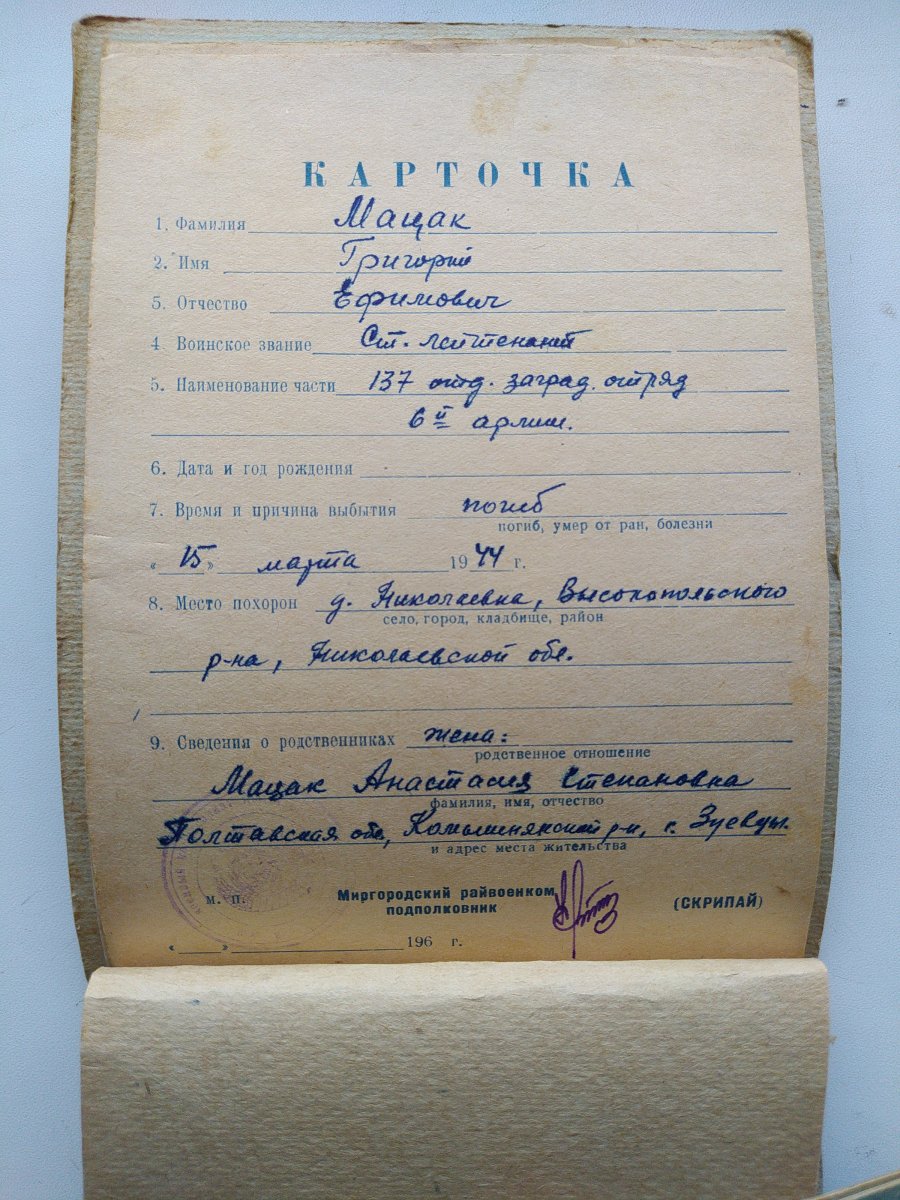 КАРТОЧКА
1. Фамилия Мацак
2. Имя Григорий
5. Отчество Ефимович
4. Воинское звание Ст. лейтенант
5. Наименование части 137 отд. заград. отряд
6й армии.
6. Дата и год рождения
7. Время и причина выбытия погиб
погиб, умер от ран, болезни
«15» марта 1944 г.
8. Место похорон д. Николаевка, Высокопольского
село, город, кладбище, район
р-на, Николаевской обл.
9. Сведения о родственниках жена:
родственное отношение
Мацак Анастасия Степановна
фамилия, имя, отчество
Полтавская обл, Комышнянский р-н, с. Зуевцы.
и адрес места жительства
м. п. Миргородский райвоенком
подполковник (СКРИПАЙ)
« » 196 г.